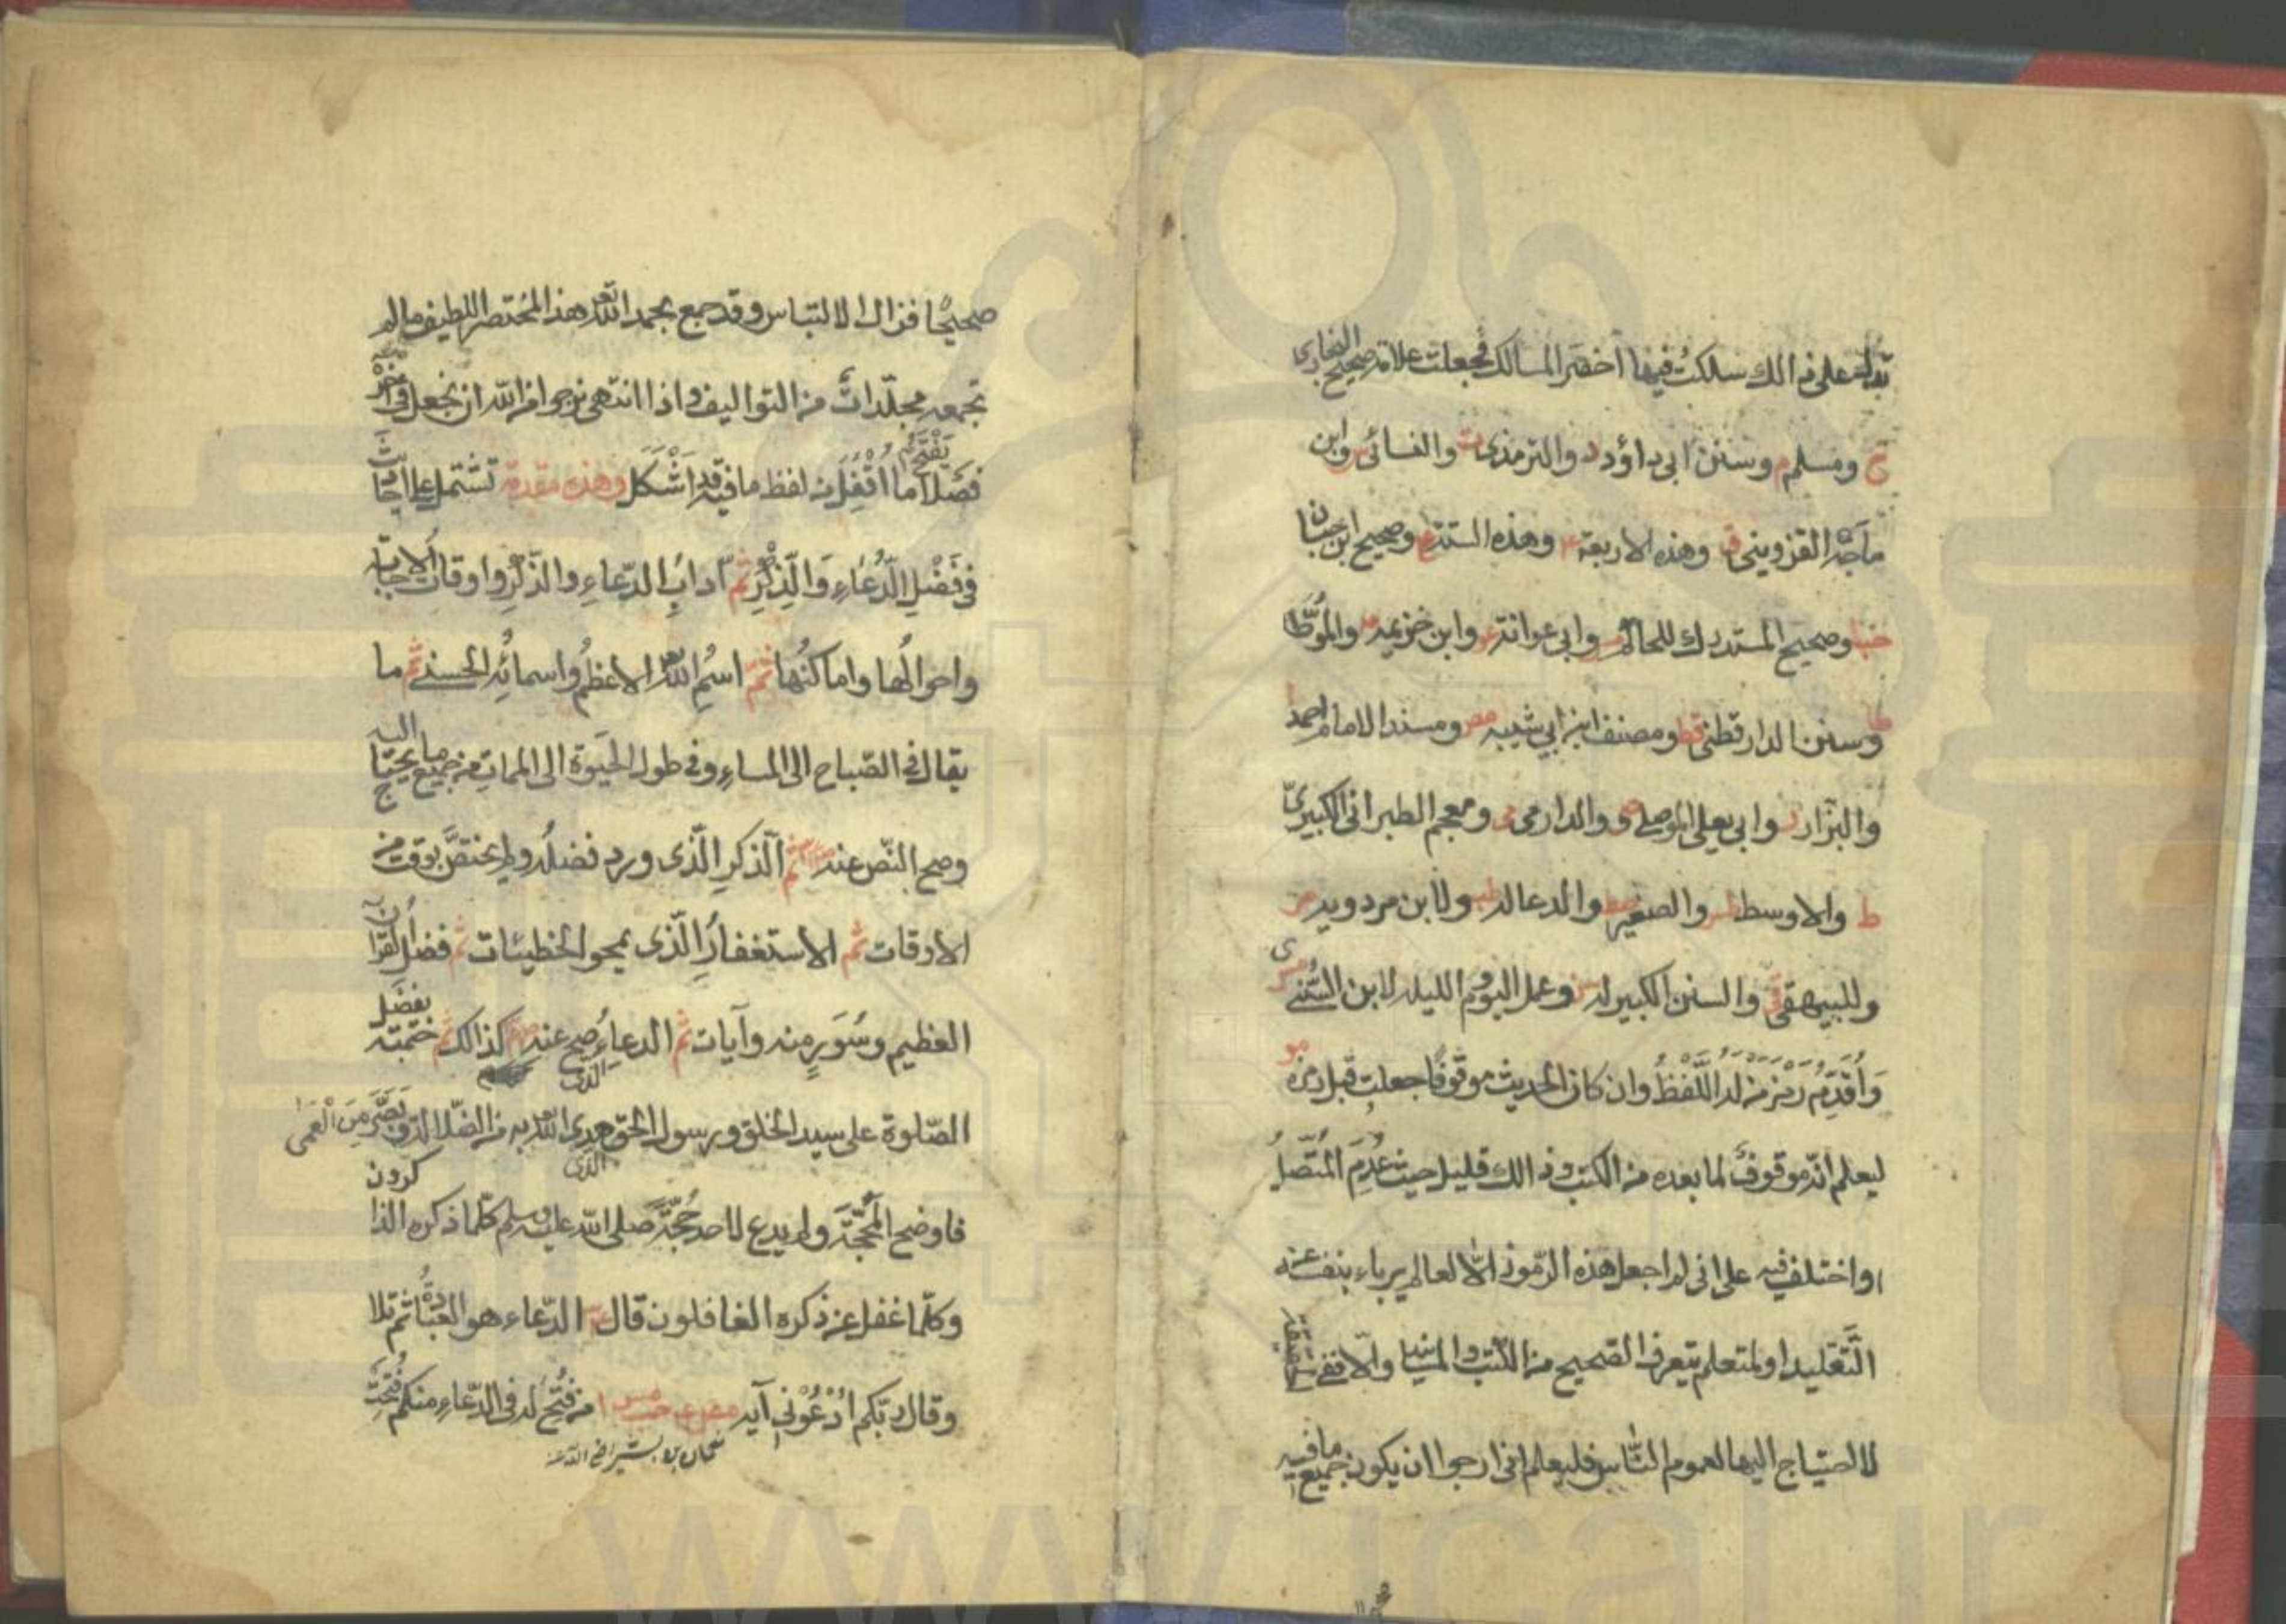 تدل على ذالك سلكت فيها اخصر المسالك فجعلت علامة صحيح البخارى
خ ومسلم م وسنن ابى داؤد د والترمذى ت والنسائى س وابن
ماجة القزوينى ق وهذه الاربعة عه وهذه الستة ع وصحيح ابن حبان
حب وصحيح المستدرك للحاكم مس وابى عوانة عو وابن خزيمة مه والموطّا
طا وسنن الدارقطنى قط ومصنف ابن ابى شيبه مص ومسند الامام احمد ا
والبزار ر وابى يعلى الموصلى ص والدارمى مى ومعجم الطبرانى الكبير
ط والاوسط طس والصغير صط والدعا له طب ولابن مردويه مر
وللبيهقى قى والسنن الكبير له سنى وعمل اليوم الليلة لابن السنى ى
وَاُقَدِّمُ رَمْزَ مَنْ لَهُ اللَّفْظُ وان كان الحديث موقوفا جعلت قبل رمزه مو
ليعلم انه موقوف لما بعده من الكتب وذالك قليل حيث عُدِمَ المتّصلُ
او اختلف فيه على انى لم اجعل هذه الرموز الّا لعالم يرباء بنفسه عن
التَّقليد او لمتعلم يتعرف الصحيح من الكتب والمسانيد والّا ففى الحقيقة
لا احتياج اليها لعموم الناس فليعلم انى ارجوا ان يكون جميع ما فيه
صحيحًا فزال الالتباس وقد جمع بحمد الله تع هذا المختصر اللطيف مالم
تجمعه مجلّداتٌ من التواليف واذا انتهى نرجوا من الله ان نجعل فى اخره
فصلاً يَفْتَحُ ما اُقْفِلَ من لفظ ما فيه قد اَشْكَلَ وهذه مقدمة تشتمل على احاديث
فى فَضْلِ الدُّعَاءِ وَالذِّكْرِ ثم ادابِ الدّعاءِ والذّكرِ واوقات الاجابة
واحوالُها واماكنُها ثمّ اسمُ الله تعالى الاعظمُ واسمائه الحسنى ثم ما
يقال فى الصّباح الى المساءِ وفى طول الحيوة الى المماتِ من جميع ما يحتاج اليه
وصح النّص عنه ثم الذكرِ الّذى ورد فضله ولم يختصّ بوقت من
الاوقات ثم الاستغفارُ الّذى يمحو الخطيئات ثم فضل القرآن
العظيم وسُوَرٍ منه وآيات ثم الدعاءُ الذى صح عنه كذالك ثم ختمته بفضل
الصّلوة على سيد الخلق ورسول الحق الذى هدى الله به من الضّلالة وبَصَّرَ مِنَ الْعَمى
فاوضح المحجّة ولم يدع لاحد حُجّةً صلى الله عليه وسلم كلّما ذكره الذاكرون
وكلّما غفل عن ذكره الغافلون قال الدّعاء هو العبادةُ ثم تلا
وقال ربّكم اُدْعُوْنِى آية مص عه حب مس ا من فُتِحَ له فى الدّعاءِ منكم فُتِحَتْ